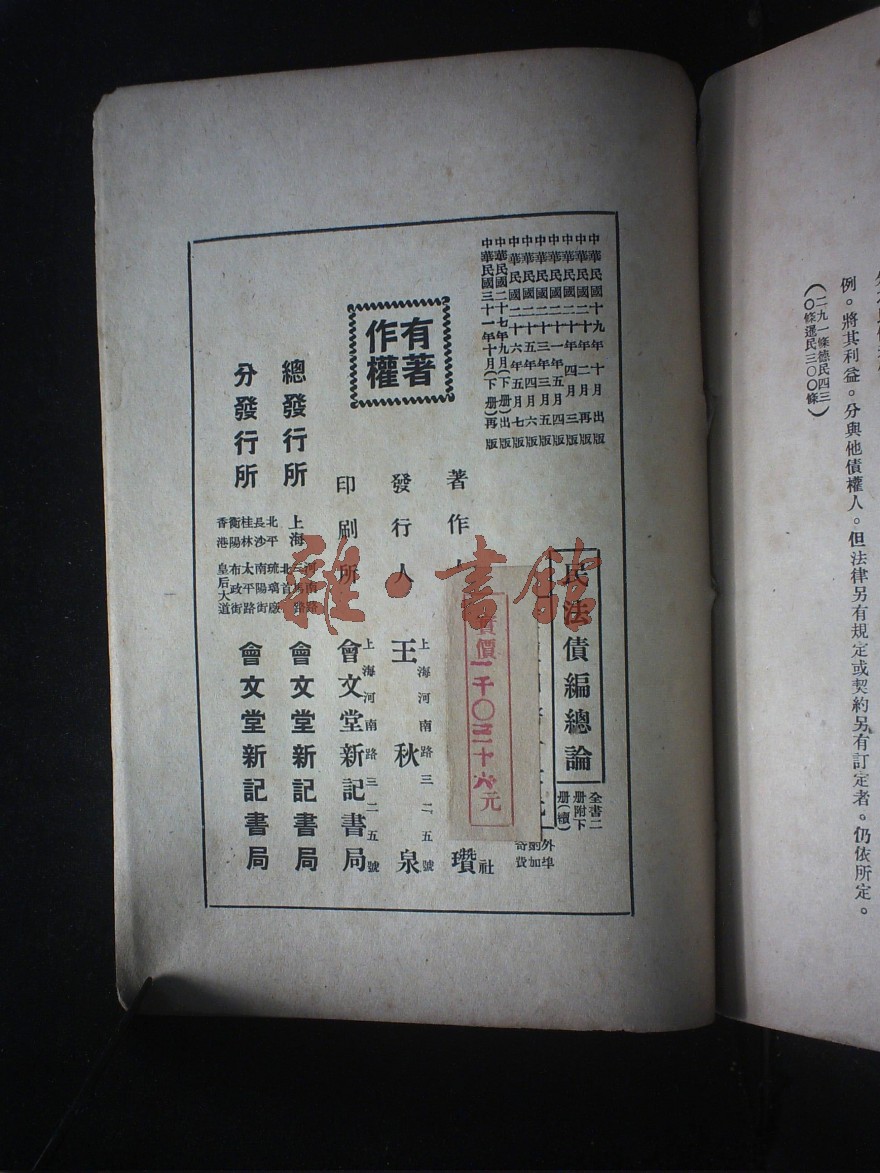 例。將其利益。分與他債權人。但法律另有規定或契約另有訂定者。仍依所定。
(二九一條德民四三
〇條暹民三〇〇條)
中華民國十九年十月出版
中華民國二十年二月再版
中華民國二十年四月三版
中華民國二十一年五月四版
中華民國二十三年三月五版
中華民國二十五年四月六版
中華民國二十六年五月七版
中華民國二十七年九月(下册)出版
中華民國三十一年十月(下册)再版
有著
作權
民法債編總論
全書二
册附下
册(續)
外埠
酌加
寄費
實價一千〇二十六元
著作
瓚
社
發行人
上海河南路三二五號
王秋泉
印刷所
上海河南路三二五號
會文堂新記書局
總發行所
上海
河南路
會文堂新記書局
分發行所
北平 琉璃廠
長沙 南陽街
桂林 太平路
衡陽 布政街
香港 皇后大道
會文堂新記書局
雜·書館